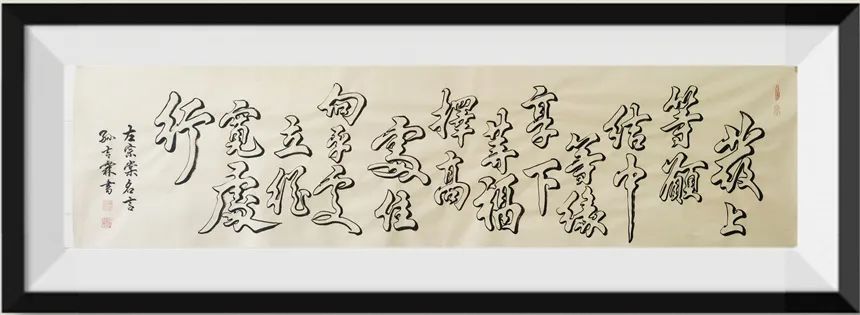 發上
等願
結中
等緣
享下
等福
擇高
處住
向平處
立從
寬處
行
左宗棠名言
孫吉霖書